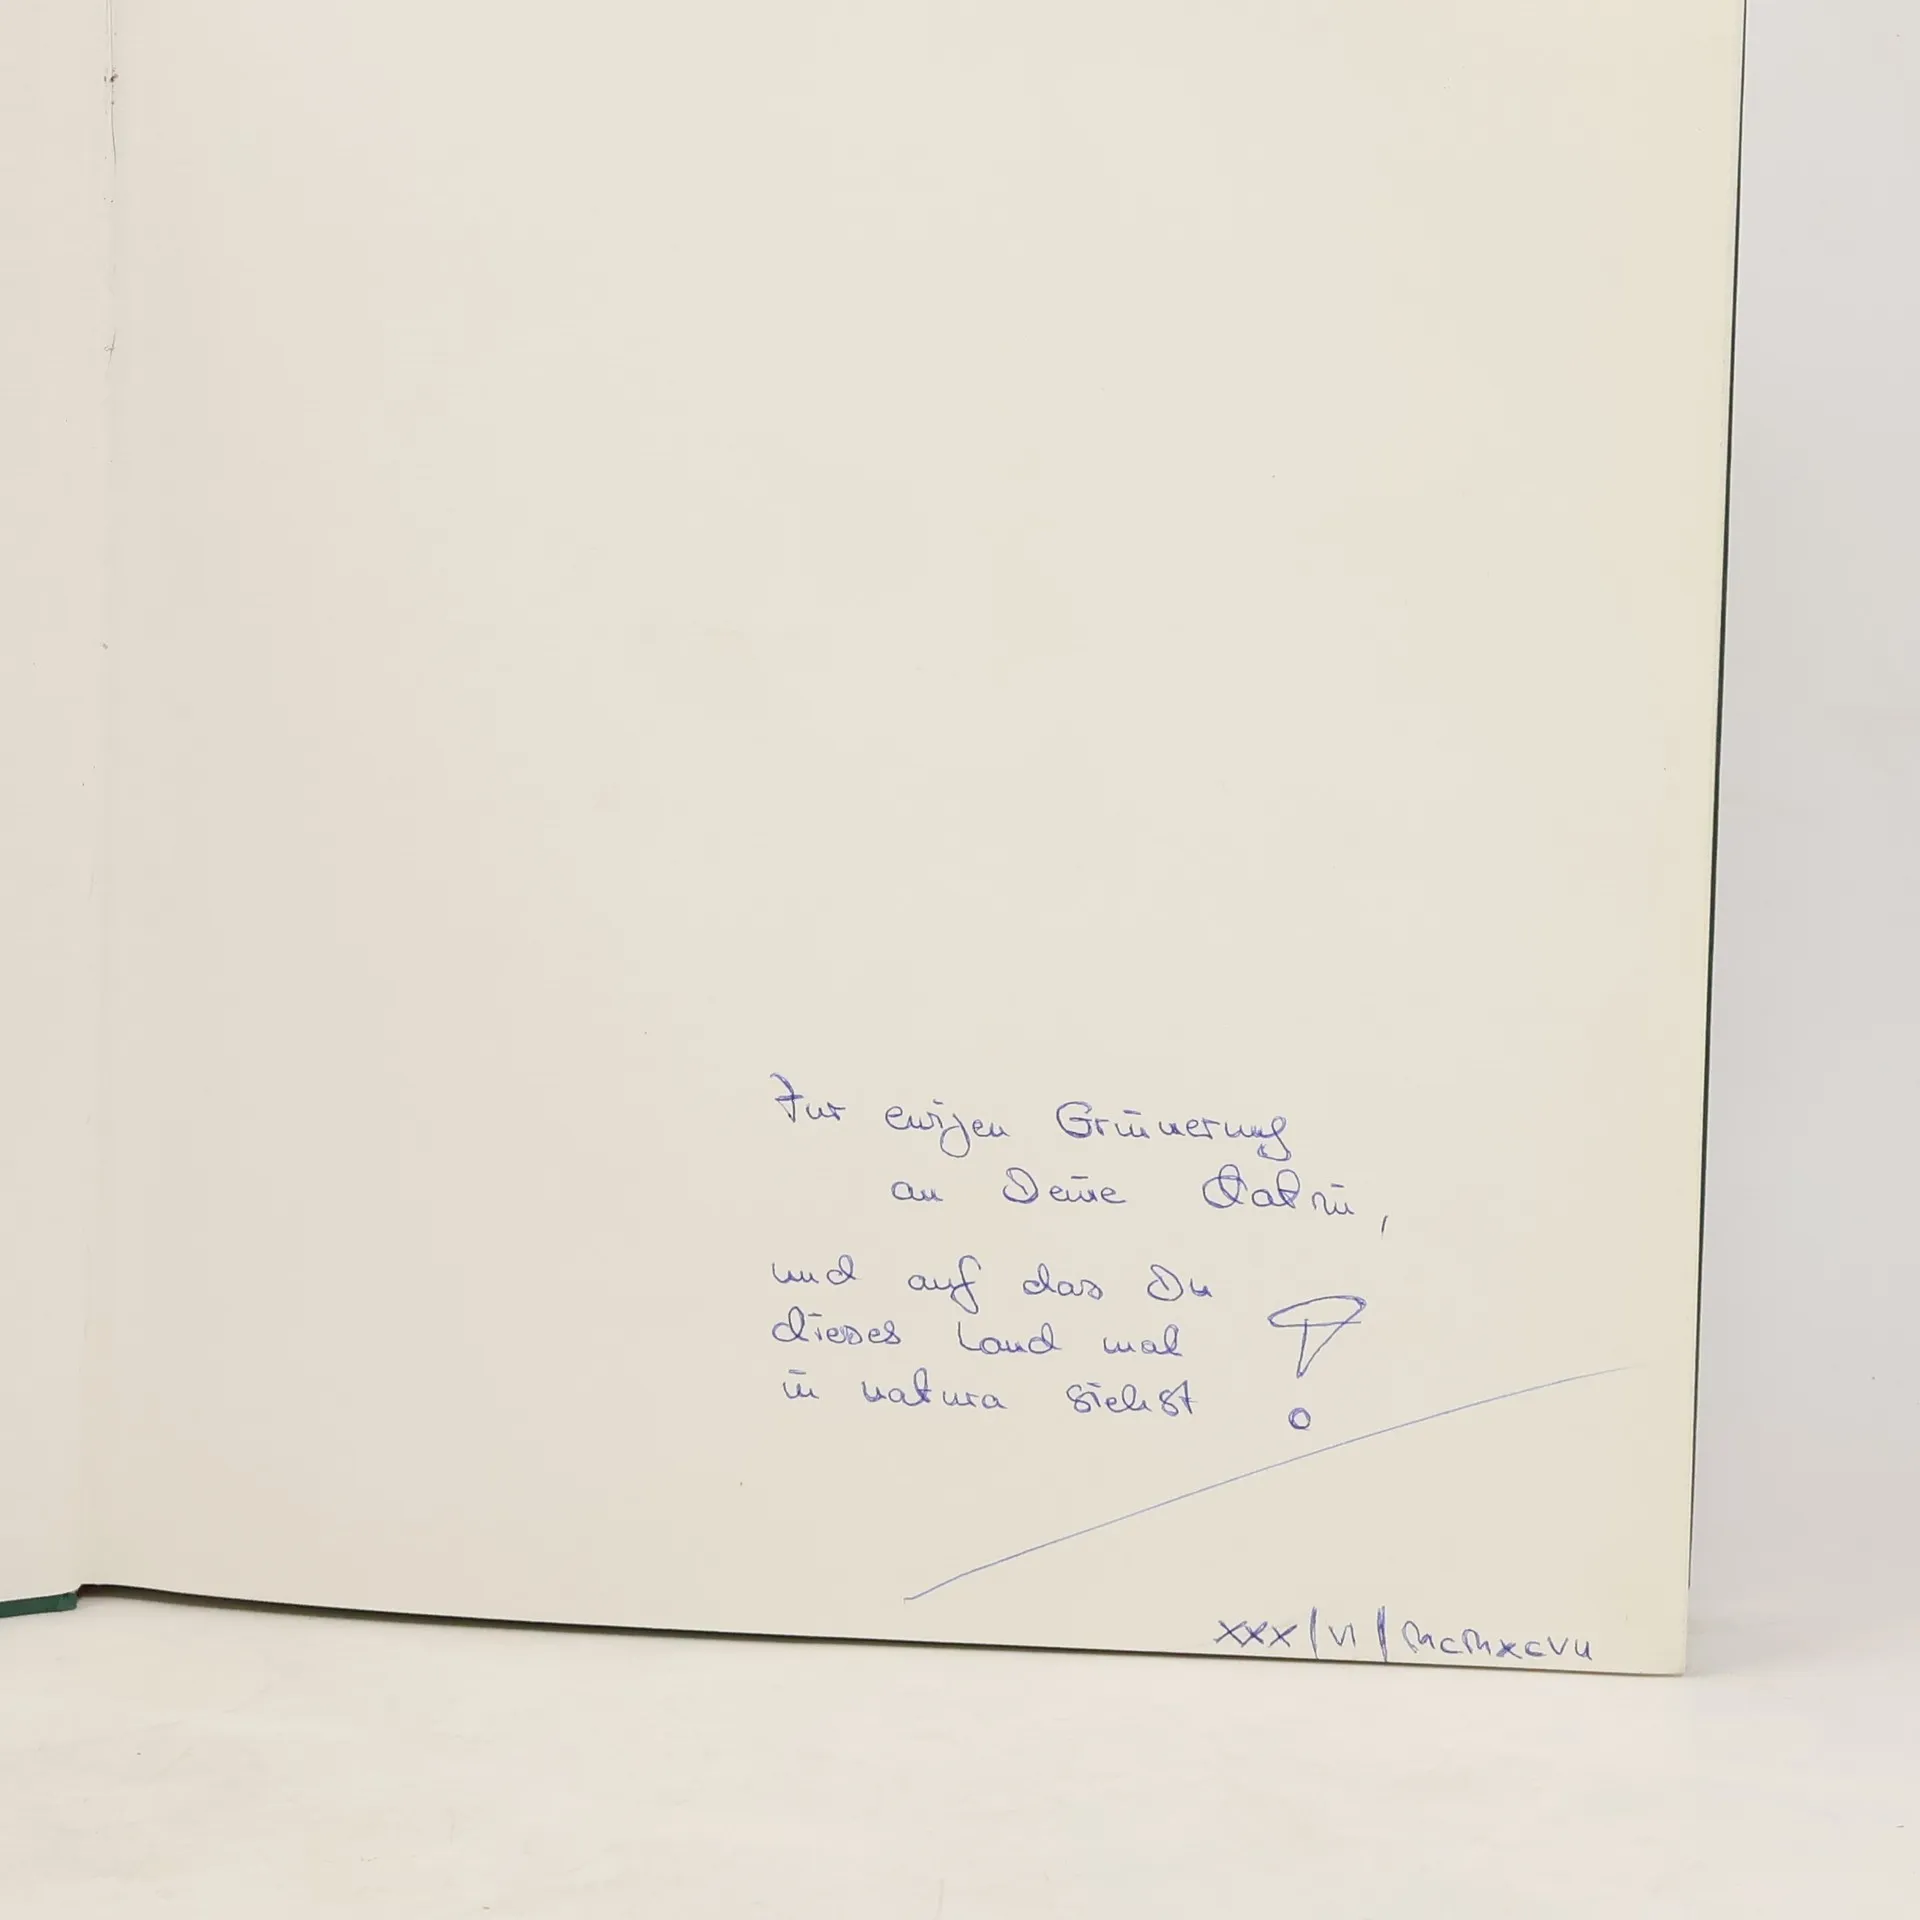 Zur ewigen Erinnerung
an Deine Catrin,
und auf das Du
dieses Land mal
in natura siehst !
XXX/VI/MCMXCVII